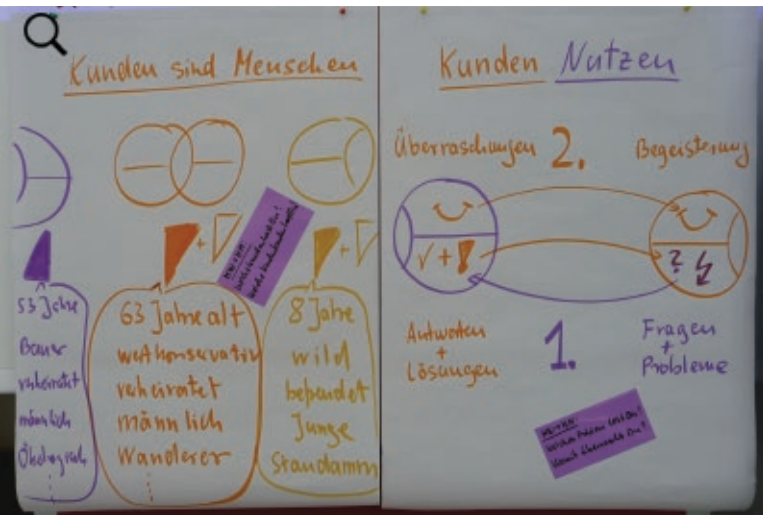 Kunden sind Menschen
53 Jahre
Bauer
verheiratet
männlich
63 Jahre alt
wertkonservativ
verheiratet
männlich
Wanderer
8 Jahre
wild
befreundet
Junge
Staudamm
Kunden Nutzen
Überraschungen 2. Begeisterung
√ + ! ?
Antworten
+
Lösungen
1.
Fragen
+
Probleme